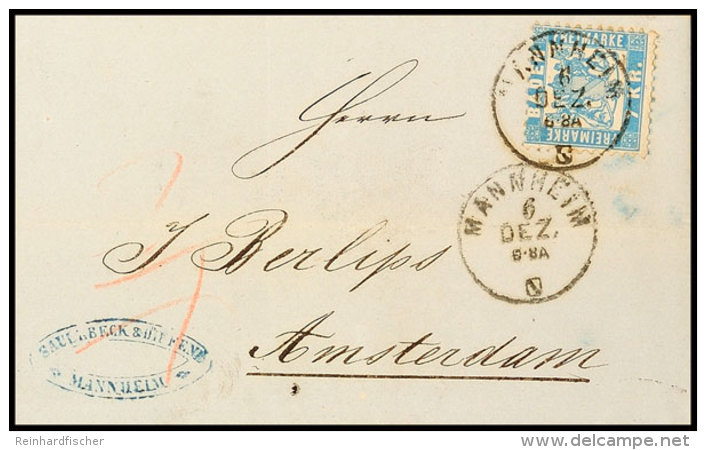 FREIMARKE
BADEN
7 KR.
FREIMARKE
MANNHEIM
6
DEZ.
6-8A
N
Herrn
MANNHEIM
6
DEZ.
6-8A
N
J Berlips
Amsterdam
MANNHEIM
Reinhardfischer
delcampe.net